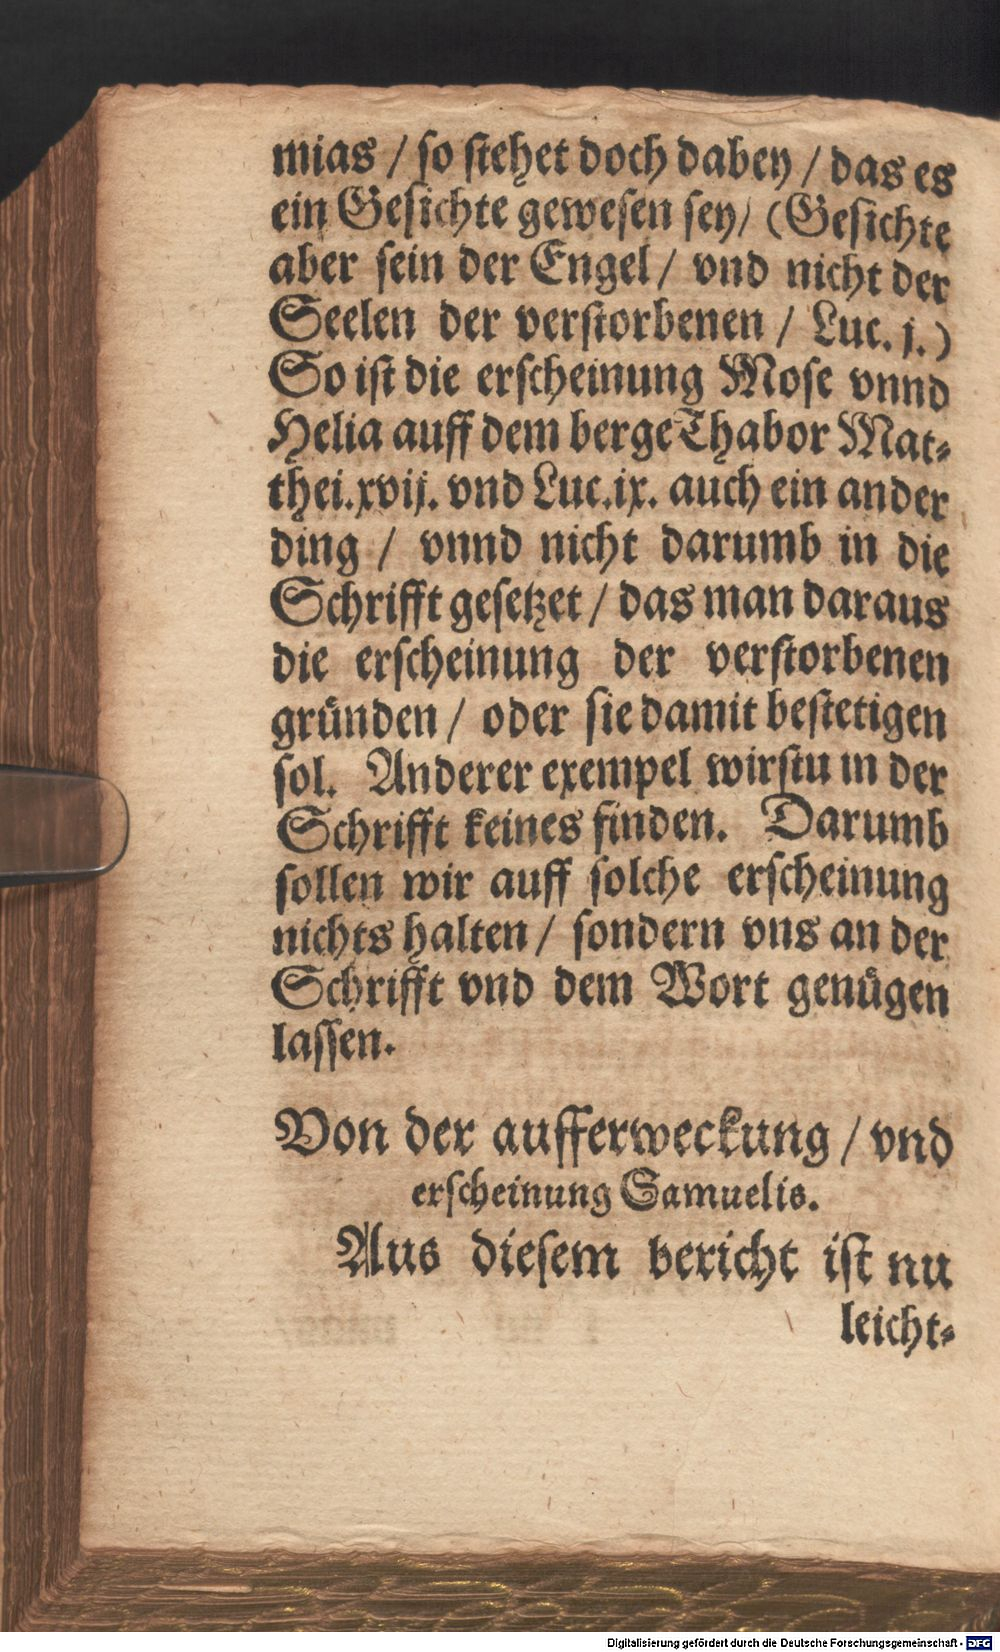 mias / so stehet doch dabey / das es
ein Gesichte gewesen sey/ (Gesichte
aber sein der Engel / vnd nicht der
Seelen der verstorbenen / Luc. j.)
So ist die erscheinung Mose vnnd
Helia auff dem berge Thabor Mat-
thei.xvij. vnd Luc.ix. auch ein ander
ding / vnnd nicht darumb in die
Schrifft gesetzet / das man daraus
die erscheinung der verstorbenen
gründen / oder sie damit bestetigen
sol. Anderer exempel wirstu in der
Schrifft keines finden. Darumb
sollen wir auff solche erscheinung
nichts halten / sondern vns an der
Schrifft vnd dem Wort genügen
lassen.
Von der aufferweckung / vnd
erscheinung Samuelis.
Aus diesem bericht ist nu
leicht-
Digitalisierung gefördert durch die Deutsche Forschungsgemeinschaft - DFG